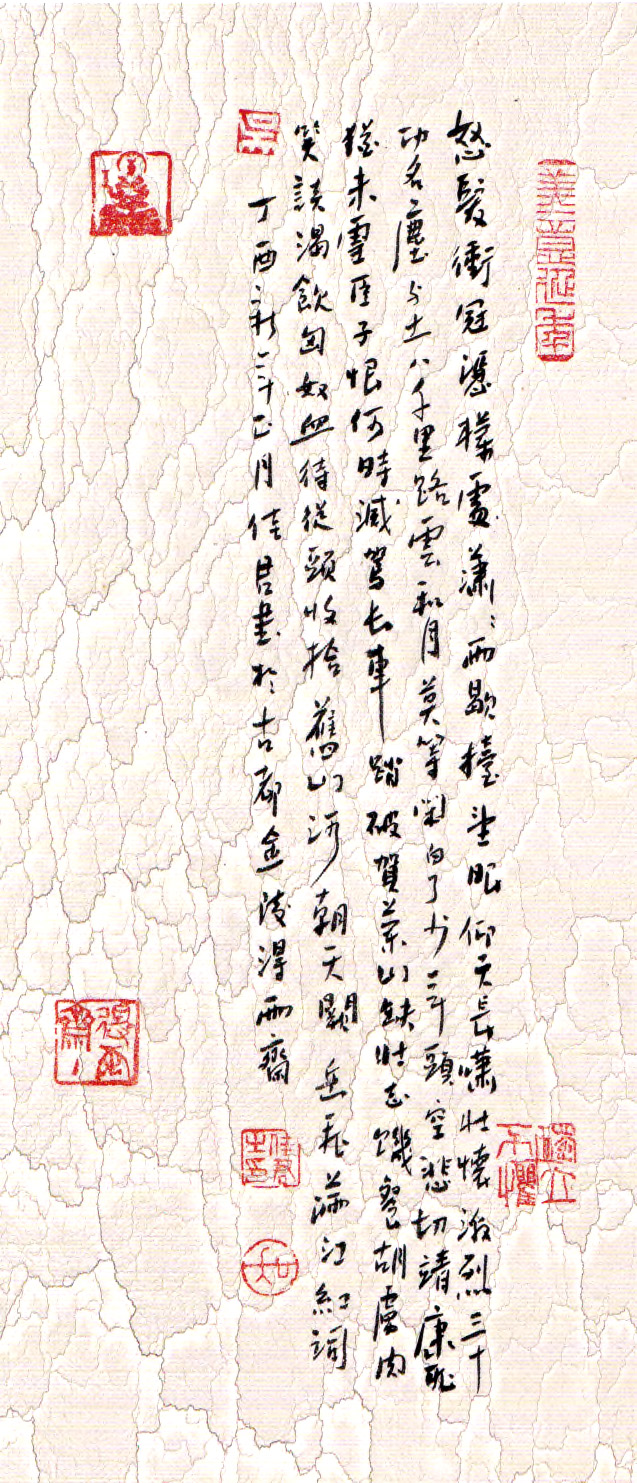 美意延年
怒髮衝冠憑欄處瀟〻雨歇擡望眼仰天長嘯壯懷激烈三十
功名塵与土八千里路雲和月莫等閑白了少年頭空悲切靖康恥
猶未雪臣子恨何時滅駕长車踏破賀蘭山缺壯志饑餐胡虜肉
笑談渴飲匈奴血待從頭收拾舊山河朝天闕 岳飛滿江紅詞
丁酉新年正月佳君書於古都金陵淂雨齋
獨立不懼
知